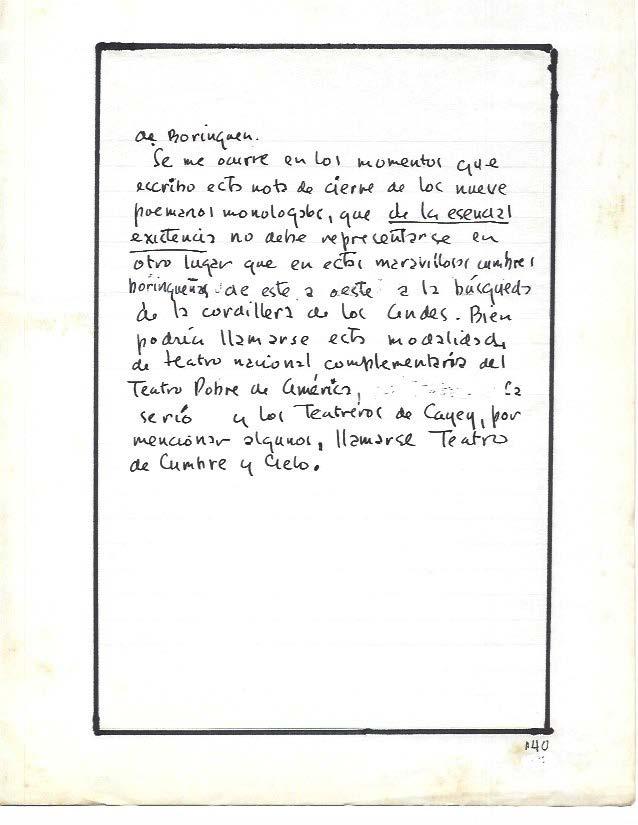 de Borinquen.
Se me ocurre en los momentos que
escribo esta nota de cierre de los nueve
poemanos monologados, que de la esencial
existencia no debe representarse en
otro lugar que en estas maravillosas cumbres
borinqueñas de este a oeste a la búsqueda
de la cordillera de los Andes. Bien
podría llamarse esta modalidad
de teatro nacional complementaria del
Teatro Pobre de América,
y los Teatreros de Cayey, por
mencionar algunos, llamarse Teatro
de Cumbre y Cielo.
140